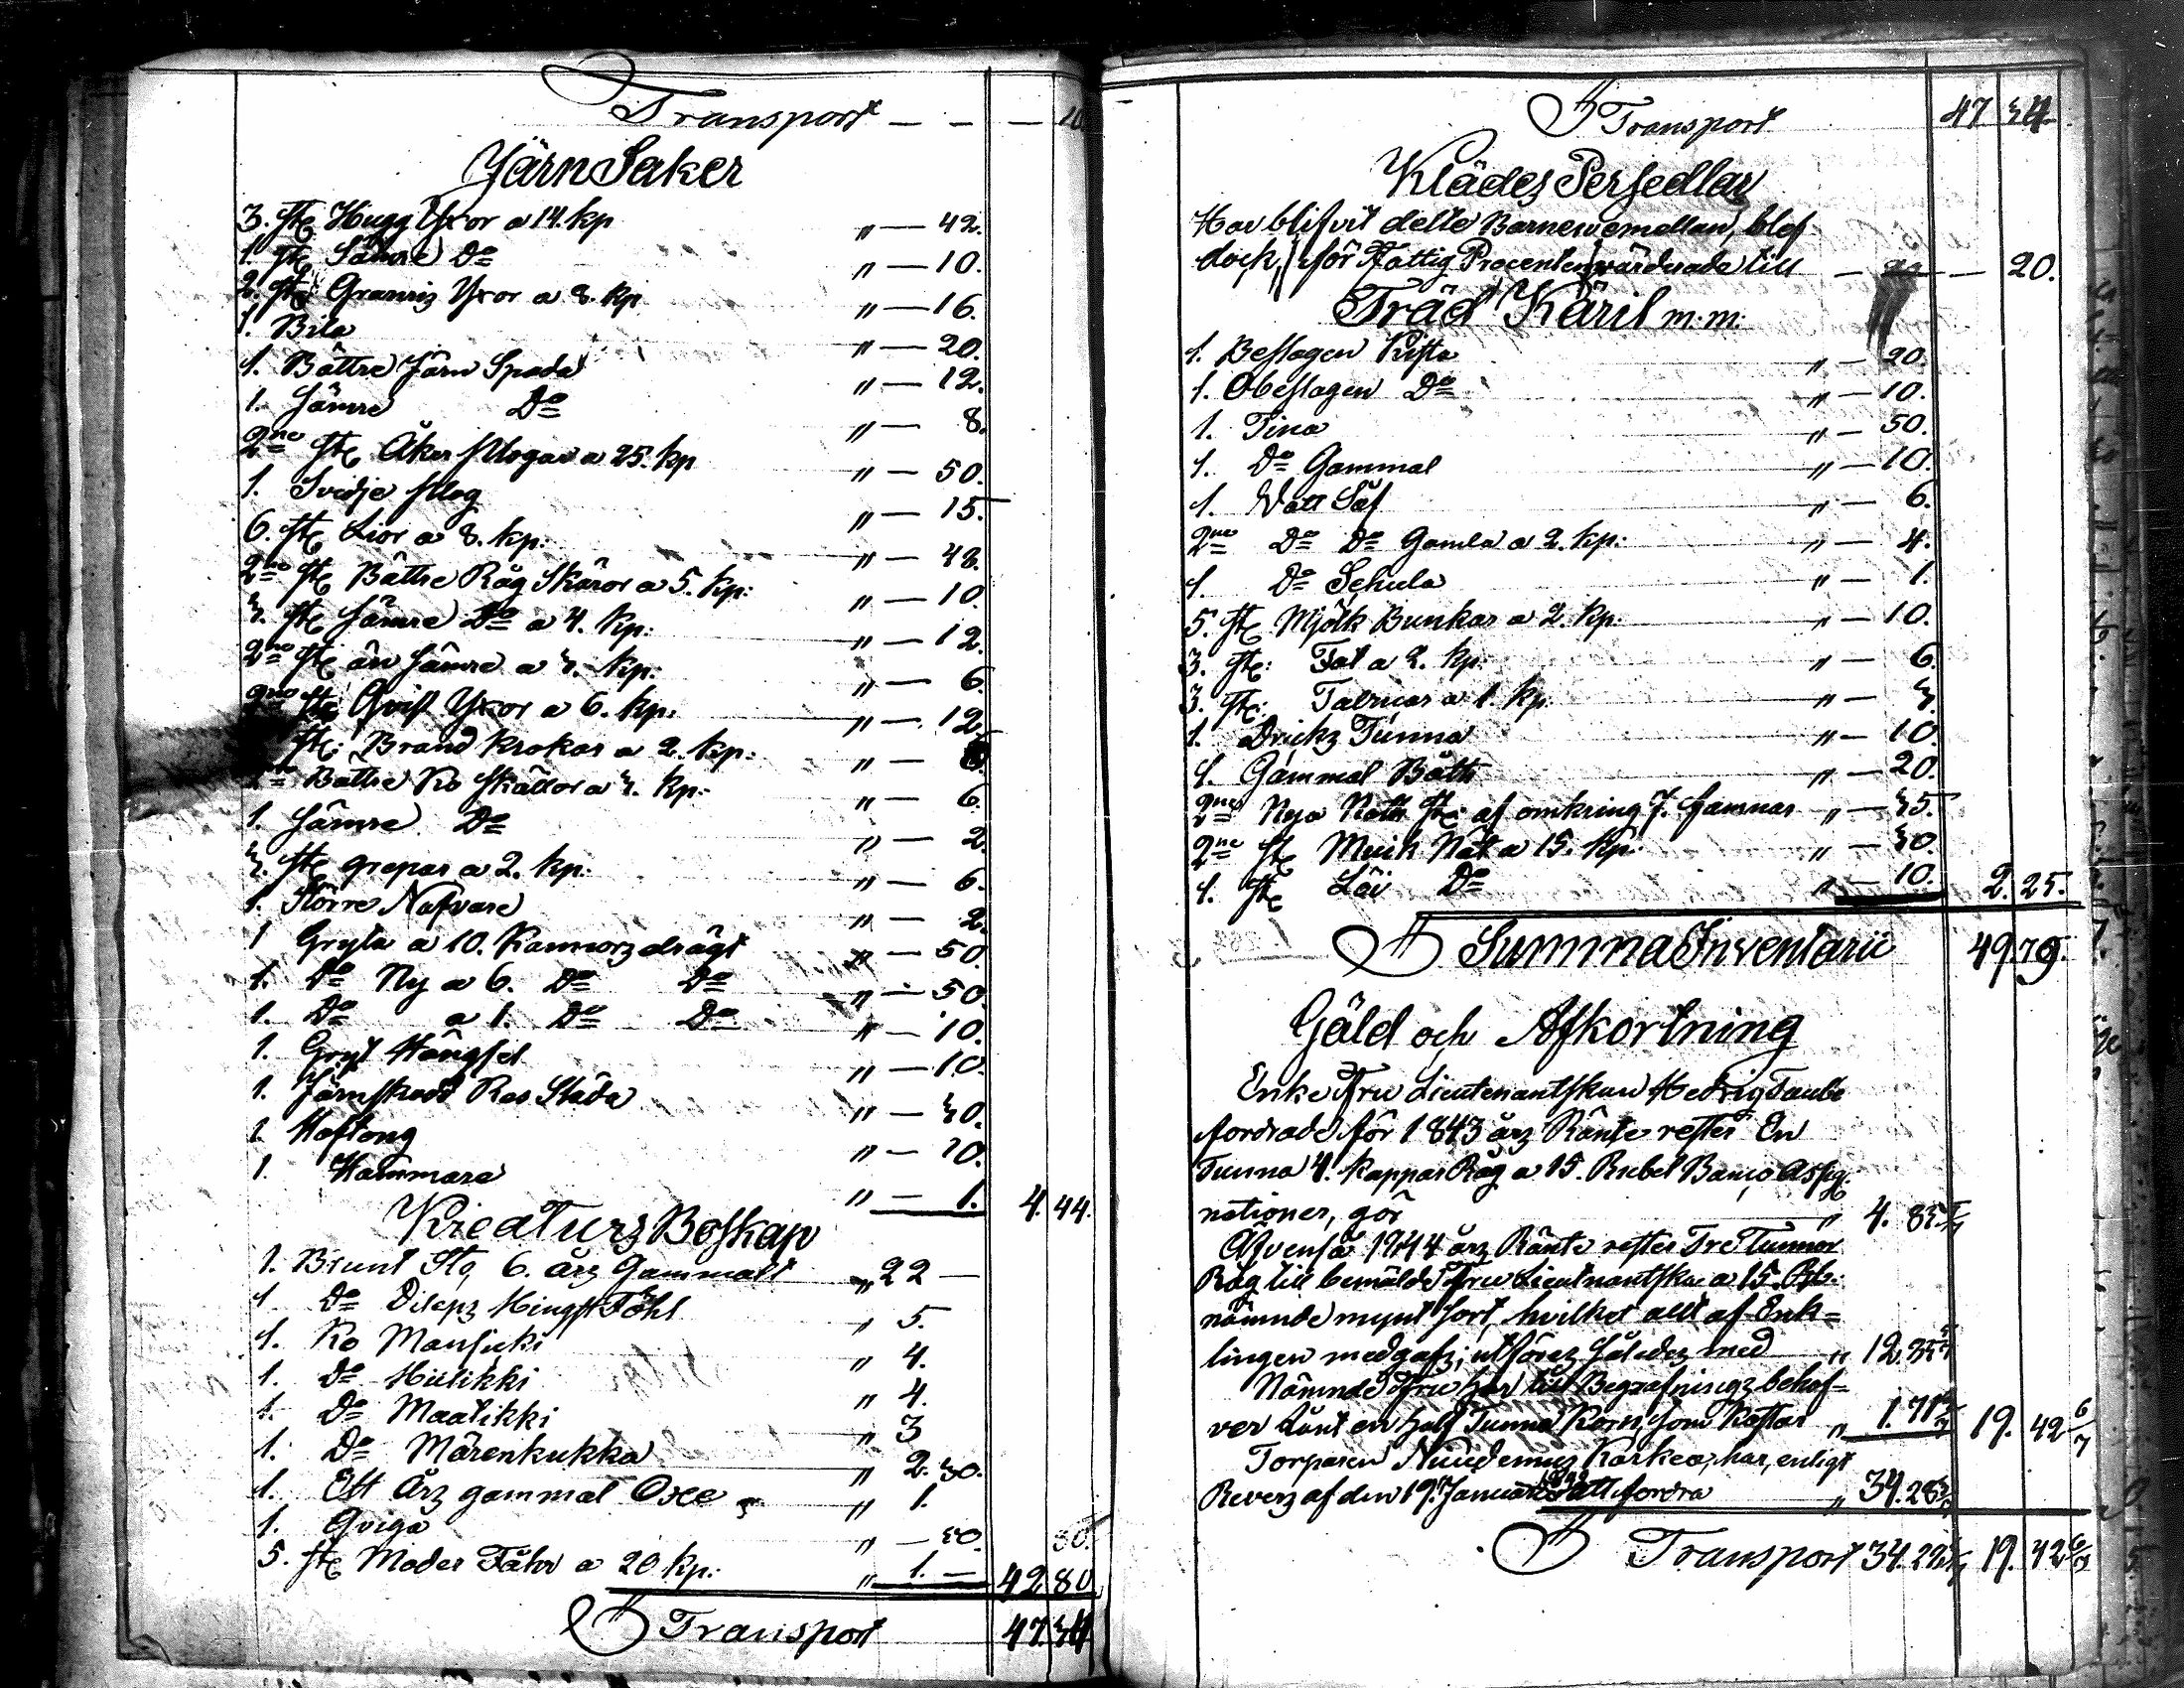 Transport — — — 10
Järn Saker
3. st: Hugg Yxor a 14. kp " — 42.
1. st: Sämre Do " — 10.
2. st: Granriz Yxor a 8. kp " — 16.
1. Bila " — 20.
1. Bättre Järn Spada " — 12.
1. sämre Do " — 8.
2ne st: Åker plogar a 25. kp " — 50.
1. Svedje plog " — 15.
6. st: Lior a 8. kp: " — 48.
2ne st: Bättre Råg Skäror a 5. kp: " — 10.
3. st: sämre Do a 4. kp: " — 12.
2ne st: än sämre a 3. kp: " — 6.
2ne st: Qvist Yxor a 6. kp: " — 12.
st: Brand krokar a 2. kp: " —
Bättre Ko skällor a 3. kp: " — 6.
1. sämre Do " — 2.
3. st: grepar a 2. kp: " — 6.
1. Större Nafvare " — 2.
1 Gryta a 10. Kannorz drägt " — 50.
1. Do Ny a 6. Do Do " — 50.
1. Do a 1. Do Do " — 10.
1. Gryt Hängsel " — 10.
1. Järnskodd Res Släda " — 30.
1. Hoftong " — 10.
1. Hammare " — 1. 4. 44.
Kreaturz Boskap
1. Brunt Sto, 6. årz Gammalt " 22 —
1 Do Hingst Fåhl " 5.
1. Ko Mansicki " 4.
1. Do Mielikki " 4.
1. Do Maatikki " 3
1. Do Märenkukka " 2. 30.
1. Ett Årz gammal Oxe " 1.
1. Qviga " — 50.
5. st: Moder Fåhr a 20 kp: " 1. — 42 80
Transport 47. 34.
Transport 47 34.
Klädes Persedlar
Har blifvit delte Barnen emellan, blef
dock, för Fattig Procenten värderade till — — 20.
Träd Käril m: m:
1. Beslagen Kista " — 20.
1. Obeslagen Do " — 10.
1. Tina " — 50.
1. Do Gammal " — 10.
1. Såf " — 6.
2ne Do Do Gamla a 2. kp: " — 4.
1 Do " — 1.
5. st: Mjölk Bunkar a 2. kp: " — 10.
3. st: Fat a 2. kp: " — 6.
3. st: Talrikar a 1. kp. " — 3.
1. Drickz Tunna " — 10.
1. Gammal Båth " — 20.
2ne Nya st: af omkring 7. famnar " — 35.
2ne st: Nät a 15. kp: " — 30.
1. st: Löi Do " — 10. 2. 25.
Summa Inventarii 49. 79.
Gäld och Afkortning
Enke Fru Lieutenantskan Hedvig Taube
fordrade för 1843 årz Ränte rester En
Tunna 4. kappar Råg a 15. Rubel Banco Assig=
nationer, gör " 4. 85 5/7
Äfvenså 1844 årz Ränte rester Tre Tunnor
Råg till bemälde Fru Lieutnantska a 15. Rub:
nämnde mynt sort, hvilket allt af Enk=
lingen medgafz; utföres således med " 12. 85 5/7
Nämnde Fru har till Begrafningz behof=
ver lånt en half Tunna Korn som kostar " 1. 71 3/7 19. 42 6/7
Torparen Karkea, har, enligt
Reverz af den 19. Januari att fordra " 34. 28 4/7
Transport 34. 28 4/7 19. 42 6/7